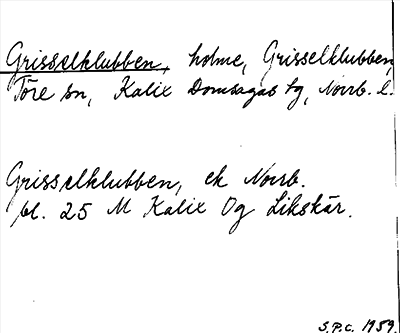 Grisselklubben, holme, Grisselklubben,
Töre sn, Kalix Domsagas tg, Norrb. l.
Grisselklubben, ek Norrb.
bl. 25 M Kalix Og Likskär.
S.P.C. 1959.